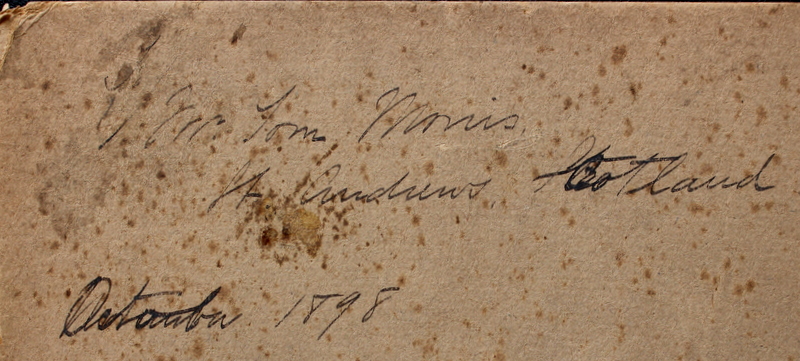 Mr Tom Morris,
St Andrews, Scotland
October 1898